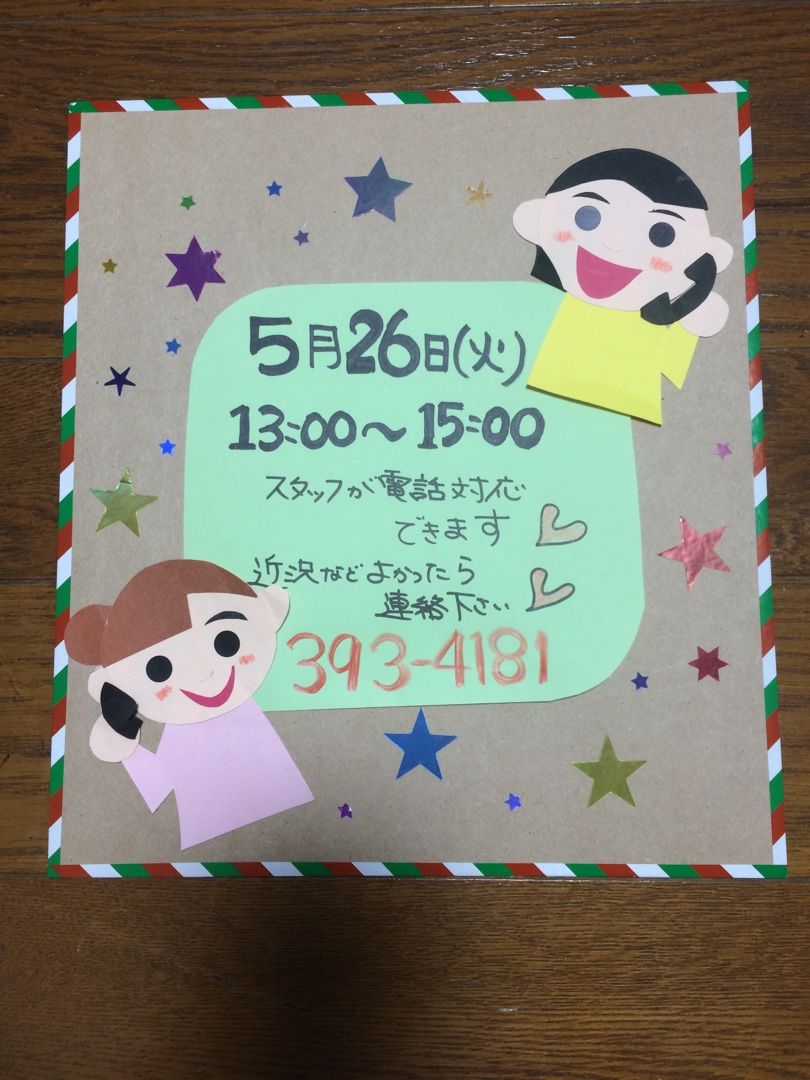 5月26日(火)
13:00～15:00
スタッフが電話対応
できます
近況などよかったら
連絡下さい
393-4181